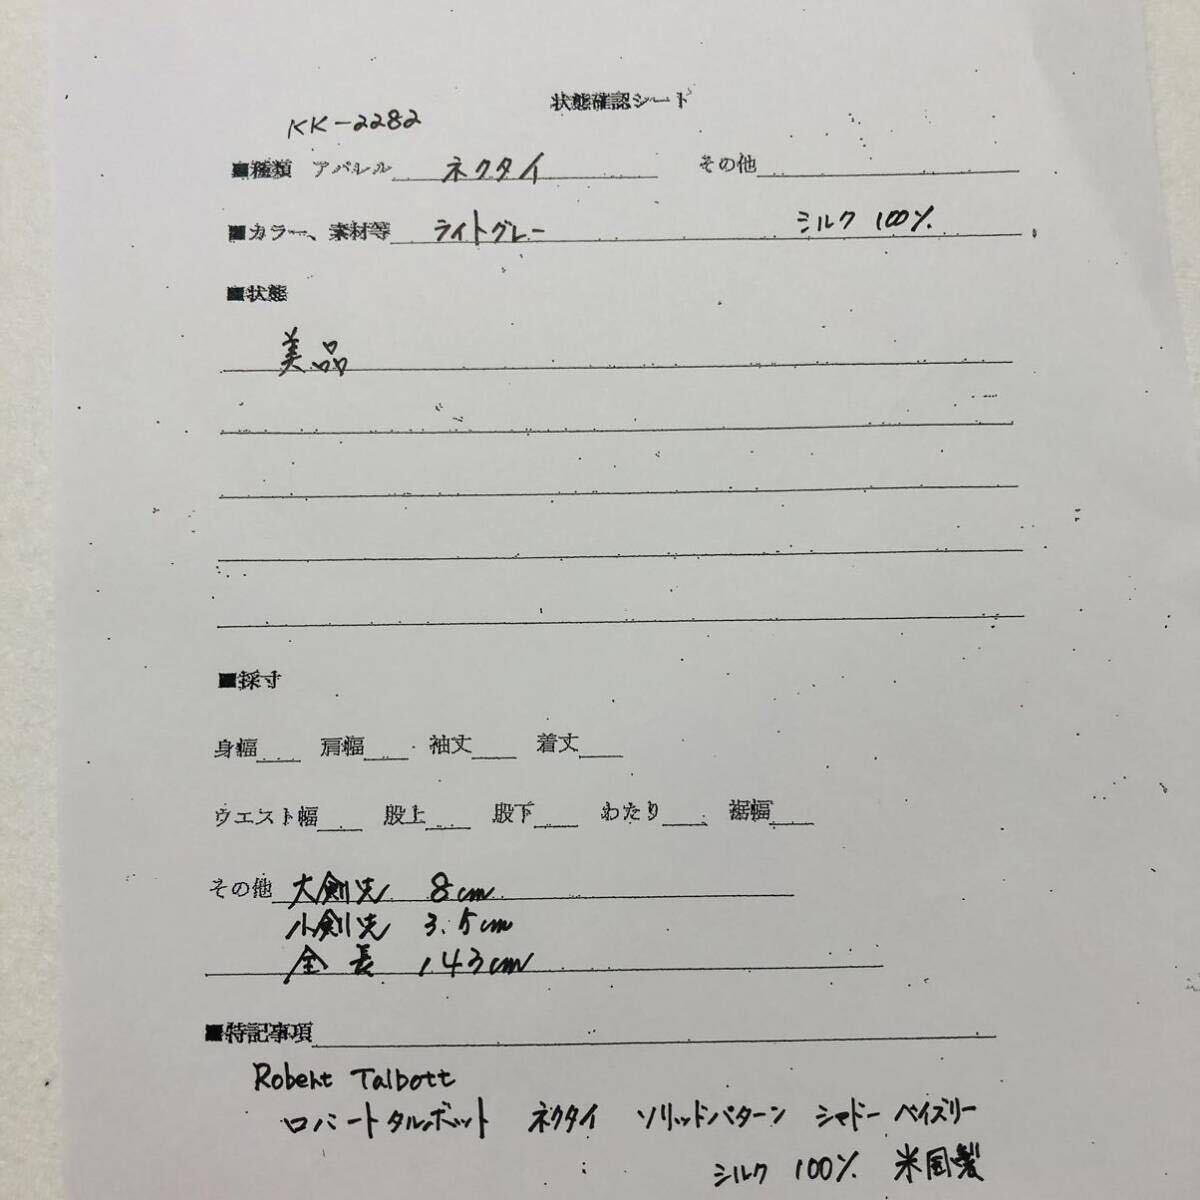 状態確認シート
KK-2282
■種類 アパレル ネクタイ その他
■カラー、素材等 ライトグレー シルク 100%
■状態
美品
■採寸
身幅 肩幅 袖丈 着丈
ウエスト幅 股上 股下 わたり 裾幅
その他 大剣先 8cm
小剣先 3.5cm
全長 143cm
■特記事項
Robert Talbott
ロバートタルボット ネクタイ ソリッドパターン シャドーペイズリー
シルク 100% 米国製